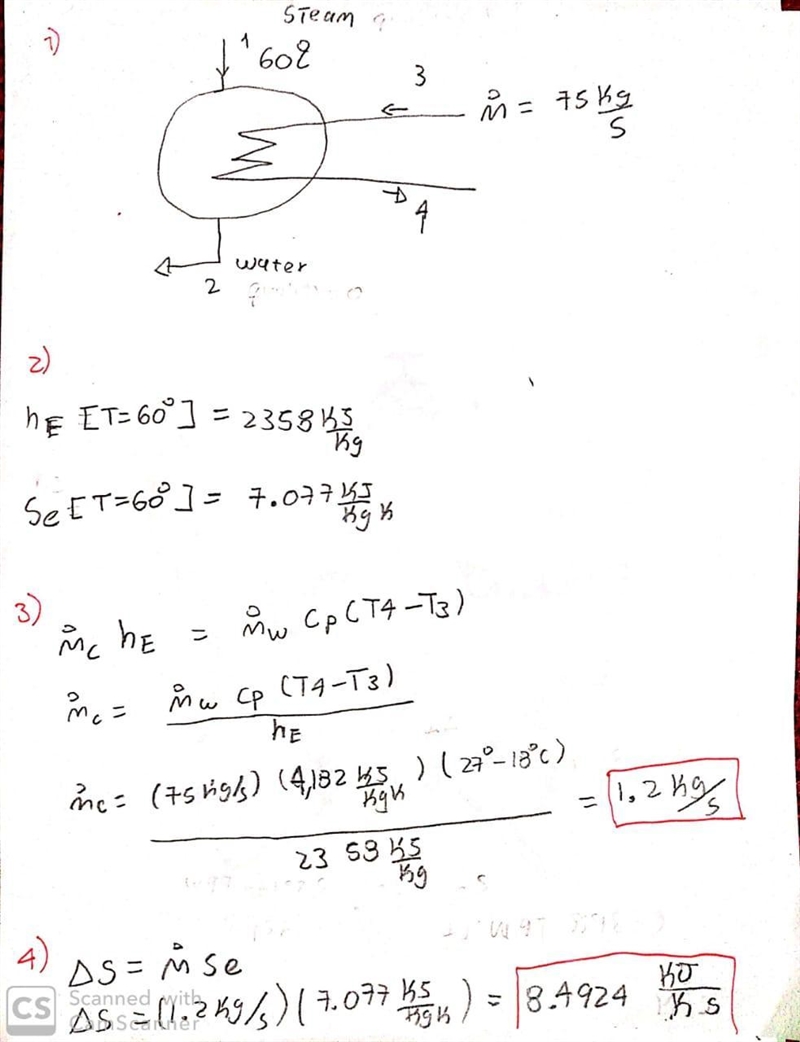 STeam
1)
1 60º
3
ṁ = 75 Kg/S
4
water
2
2)
hE [T=60°] = 2358 KJ/Kg
Se [T=60°] = 7.077 KJ/Kg K
3)
ṁc hE = ṁw Cp (T4-T3)
ṁc = ṁw Cp (T4-T3) / hE
ṁc = (75 Kg/s) (4,182 KJ/KgK) (27°-18°C) / 2358 KJ/Kg = 1.2 Kg/s
4) ΔS = ṁ Se
ΔS = (1.2 Kg/s) (7.077 KJ/KgK) = 8.4924 KJ/K s
CS Scanned with
CamScanner